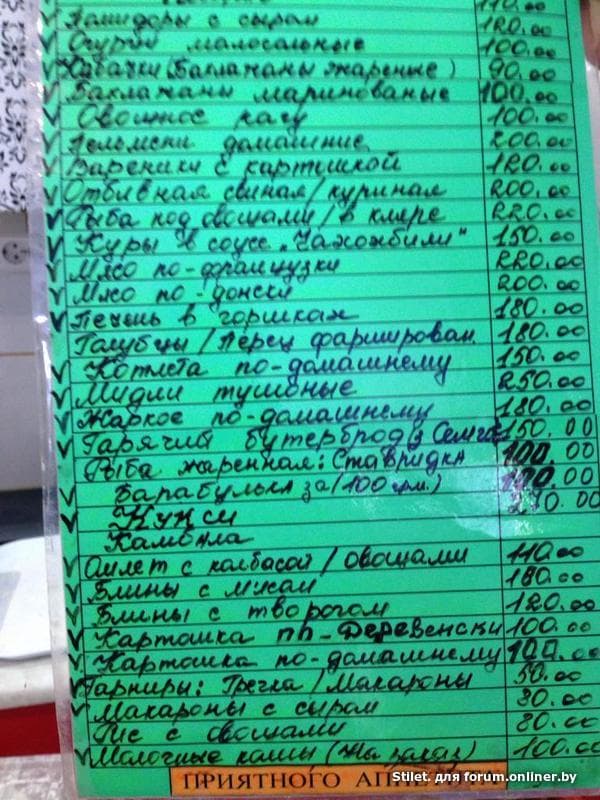 110.00
Помидоры с сыром 120.00
Огурцы малосольные 100.00
Кабачки (Баклажаны жареные) 90.00
Баклажаны маринованые 100.00
Овощное рагу 100.00
Пельмени домашние 200.00
Вареники с картошкой 120.00
Отбивная свиная/куриная 200.00
Рыба под овощами/в кляре 220.00
Куры в соусе "Чахохбили" 150.00
Мясо по-французки 220.00
Мясо по-донски 200.00
Печень в горшках 180.00
Голубцы/Перец фарширован. 180.00
Котлета по-домашнему 150.00
Мидии тушоные 250.00
Жаркое по-домашнему 180.00
Гарячий бутерброд з Семгой 150.00
Рыба жаренная: Ставридка 100.00
Барабулька за (100 грм.) 00
00
Камбала
Омлет с колбасой/овощами 110.00
Блины с мясом 180.00
Блины с творогом 120.00
Картошка по-Деревенски 100.00
Картошка по-домашнему 100.00
Гарниры: Гречка/Макароны 50.00
Макароны с сыром 80.00
Рис с овощами 80.00
Молочные каши (На заказ) 100.00
ПРИЯТНОГО
Stilet. для forum.onliner.by